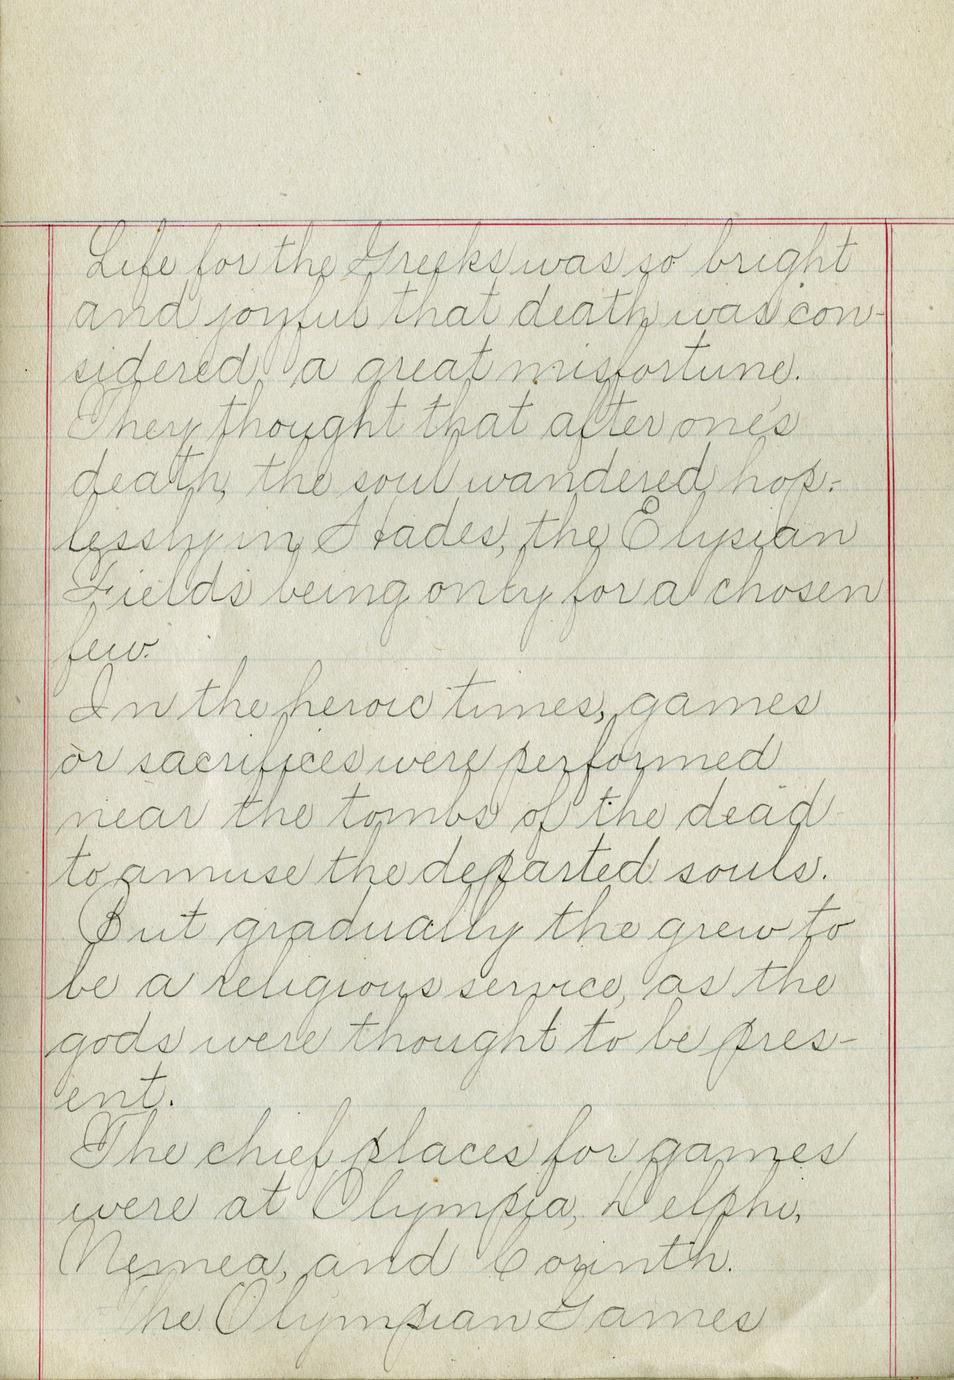 Life for the Greeks was so bright
and joyful that death was con-
sidered a great misfortune.
They thought that after one's
death, the soul wandered hop-
lessly in Hades, the Elysian
Fields being only for a chosen
few.
In the heroic times, games
or sacrifices were performed
near the tombs of the dead
to amuse the departed souls.
But gradually the grew to
be a religious service, as the
gods were thought to be pres-
ent.
The chief places for games
were at Olympia, Delphi,
Nemea, and Corinth.
The Olympian Games